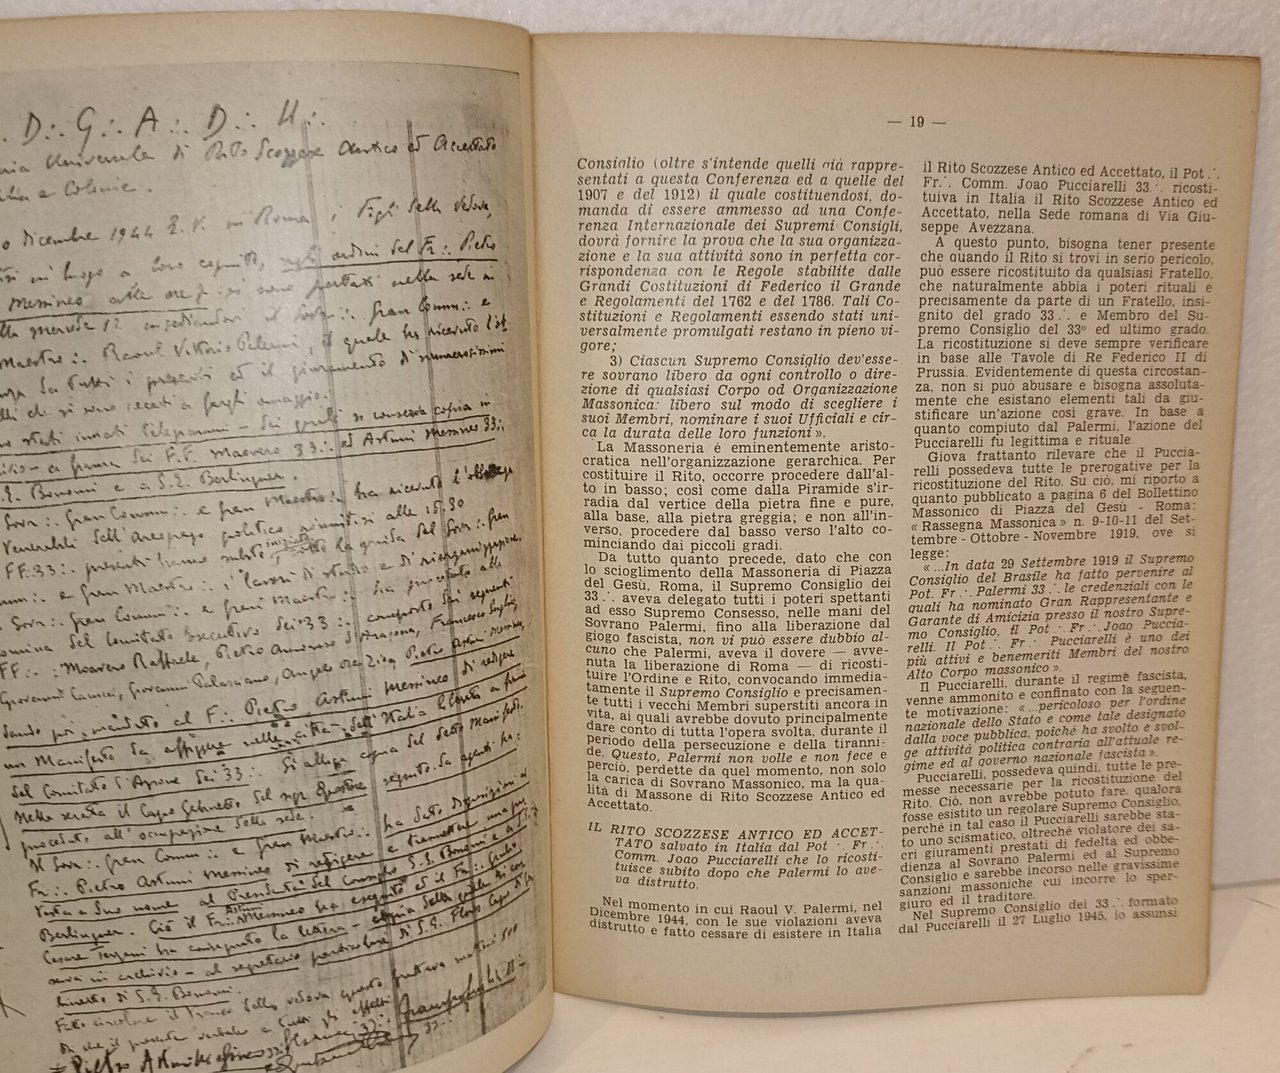 D∴ G∴ A∴ D∴ U∴
Universale di Rito Scozzese Antico ed Accettato
e Colonie.
Dicembre 1944 E. V. in Roma, i Figli della Vedova,
in luogo a loro cognito, agli ordini del Fr∴ Pietro
Messineo alle ore si sono portati nella sede in
Maestro∴ Raoul Vittorio Palermi, il quale ha ricevuto
da tutti i presenti ed il giuramento di numerosissimi
che si sono recati a fargli omaggio.
stati inviati telegrammi - dei quali si conserva copia in
a firma dei F.F. Maovero 33∴ ed Artuni Messineo 33∴
S.E. Bonomi e a S.E. Berlinguer.
Sovr∴ Gran Comm∴ e Gran Maestro∴ ha ricevuto
Venerabili dell'Areopago politico, riunitisi alle 15.30
FF. 33∴ presenti hanno subito la guida del Sovr∴ Gran
e Gran Maestro∴, i lavori di studio e di riorganizzazione.
Sovr∴ Gran Comm∴ e Gran Maestro∴ ha proceduto alla
nomina del Comitato Esecutivo dei 33∴ composto dai seguenti
FF∴: Maovero Raffaele, Pietro d'Aragona, Francesco
Giovanni Giovanni Angelo Pietro Artuni Messineo,
dando poi mandato al F∴ Pietro Artuni Messineo di redigere
un Manifesto da affiggere nelle città dell'Italia liberata a firma
del Comitato d'Azione dei 33∴. Si allega copia del detto Manifesto.
Nella serata il Capo Gabinetto del sign. Questore seguito da agenti ha
proceduto all'occupazione della sede.
Il Sovr∴ Gran Comm∴ e Gran Maestro∴ ha dato disposizioni al
Fr∴ Pietro Artuni Messineo di redigere e trasmettere una
a suo nome al Presidente del Consiglio S.E. Bonomi e a S.E.
Berlinguer. Ciò il Fr∴ Artuni Messineo ha eseguito ed il Fr∴ Giulio
Cesare ha consegnato la lettera - copia della quale si con-
serva in archivio - al segretario particolare di S.E. Capo di
Gabinetto di S.E. Bonomi.
Fatto circolare il Tronco della vedova questo fruttava
Di che il presente verbale a tutti gli effetti
Pietro Artuni Messineo 33∴
— 19 —
Consiglio (oltre s'intende quelli già rappre-
sentati a questa Conferenza ed a quelle del
1907 e del 1912) il quale costituendosi, do-
manda di essere ammesso ad una Confe-
renza Internazionale dei Supremi Consigli,
dovrà fornire la prova che la sua organizza-
zione e la sua attività sono in perfetta cor-
rispondenza con le Regole stabilite dalle
Grandi Costituzioni di Federico il Grande
e Regolamenti del 1762 e del 1786. Tali Co-
stituzioni e Regolamenti essendo stati uni-
versalmente promulgati restano in pieno vi-
gore;
3) Ciascun Supremo Consiglio dev'esse-
re sovrano libero da ogni controllo o dire-
zione di qualsiasi Corpo od Organizzazione
Massonica: libero sul modo di scegliere i
suoi Membri, nominare i suoi Ufficiali e cir-
ca la durata delle loro funzioni ».
La Massoneria è eminentemente aristo-
cratica nell'organizzazione gerarchica. Per
costituire il Rito, occorre procedere dall'al-
to in basso; così come dalla Piramide s'ir-
radia dal vertice della pietra fine e pure,
alla base, alla pietra greggia; e non all'in-
verso, procedere dal basso verso l'alto co-
minciando dai piccoli gradi.
Da tutto quanto precede, dato che con
lo scioglimento della Massoneria di Piazza
del Gesù, Roma, il Supremo Consiglio dei
33∴ aveva delegato tutti i poteri spettanti
ad esso Supremo Consesso, nelle mani del
Sovrano Palermi, fino alla liberazione dal
giogo fascista, non vi può essere dubbio al-
cuno che Palermi, aveva il dovere — avve-
nuta la liberazione di Roma — di ricosti-
tuire l'Ordine e Rito, convocando immedia-
tamente il Supremo Consiglio e precisamen-
te tutti i vecchi Membri superstiti ancora in
vita, ai quali avrebbe dovuto principalmente
dare conto di tutta l'opera svolta, durante il
periodo della persecuzione e della tiranni-
de. Questo, Palermi non volle e non fece e
perciò, perdette da quel momento, non solo
la carica di Sovrano Massonico, ma la qua-
lità di Massone di Rito Scozzese Antico ed
Accettato.
IL RITO SCOZZESE ANTICO ED ACCET-
TATO salvato in Italia dal Pot∴ Fr∴
Comm. Joao Pucciarelli che lo ricosti-
tuisce subito dopo che Palermi lo ave-
va distrutto.
Nel momento in cui Raoul V. Palermi, nel
Dicembre 1944, con le sue violazioni aveva
distrutto e fatto cessare di esistere in Italia
il Rito Scozzese Antico ed Accettato, il Pot∴
Fr∴ Comm. Joao Pucciarelli 33∴ ricosti-
tuiva in Italia il Rito Scozzese Antico ed
Accettato, nella Sede romana di Via Giu-
seppe Avezzana.
A questo punto, bisogna tener presente
che quando il Rito si trovi in serio pericolo,
può essere ricostituito da qualsiasi Fratello,
che naturalmente abbia i poteri rituali e
precisamente da parte di un Fratello, insi-
gnito del grado 33∴ e Membro del Su-
premo Consiglio del 33º ed ultimo grado.
La ricostituzione si deve sempre verificare
in base alle Tavole di Re Federico II di
Prussia. Evidentemente di questa circostan-
za, non si può abusare e bisogna assoluta-
mente che esistano elementi tali da giu-
stificare un'azione così grave. In base a
quanto compiuto dal Palermi, l'azione del
Pucciarelli fu legittima e rituale.
Giova frattanto rilevare che il Puccia-
relli possedeva tutte le prerogative per la
ricostituzione del Rito. Su ciò, mi riporto a
quanto pubblicato a pagina 6 del Bollettino
Massonico di Piazza del Gesù - Roma:
« Rassegna Massonica » n. 9-10-11 del Set-
tembre - Ottobre - Novembre 1919, ove si
legge:
« ...In data 29 Settembre 1919 il Supremo
Consiglio del Brasile ha fatto pervenire al
Pot. Fr∴ Palermi 33∴ le credenziali con le
quali ha nominato Gran Rappresentante e
Garante di Amicizia presso il nostro Supre-
mo Consiglio, il Pot∴ Fr∴ Joao Puccia-
relli. Il Pot∴ Fr∴ Pucciarelli è uno dei
più attivi e benemeriti Membri del nostro
Alto Corpo massonico ».
Il Pucciarelli, durante il regime fascista,
venne ammonito e confinato con la seguen-
te motivazione: « ...pericoloso per l'ordine
nazionale dello Stato e come tale designato
dalla voce pubblica, poichè ha svolto e svol-
ge attività politica contraria all'attuale re-
gime ed al governo nazionale fascista ».
Pucciarelli, possedeva quindi, tutte le pre-
messe necessarie per la ricostituzione del
Rito. Ciò, non avrebbe potuto fare, qualora
fosse esistito un regolare Supremo Consiglio,
perchè in tal caso il Pucciarelli sarebbe sta-
to uno scismatico, oltrechè violatore dei sa-
cri giuramenti prestati di fedeltà ed obbe-
dienza al Sovrano Palermi ed al Supremo
Consiglio e sarebbe incorso nelle gravissime
sanzioni massoniche cui incorre lo sper-
giuro ed il traditore.
Nel Supremo Consiglio dei 33∴ formato
dal Pucciarelli il 27 Luglio 1945, io assunsi